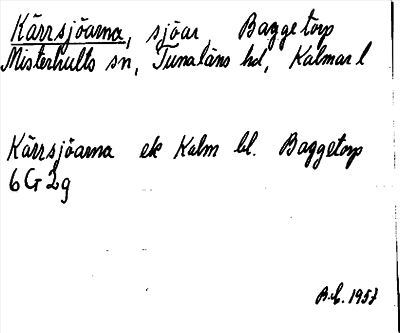 Kärrsjöarna, sjöar, Baggetorp
Misterhults sn, Tunaläns hd, Kalmar l
Kärrsjöarna ek Kalm bl. Baggetorp
6G2g
1957